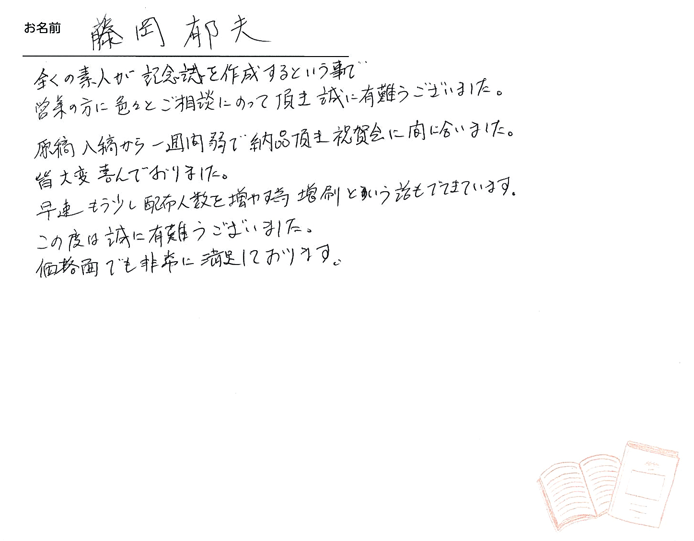 お名前 藤岡郁夫
全くの素人が記念誌を作成するという事で
営業の方に色々とご相談にのって頂き誠に有難うございました。
原稿入稿から一週間弱で納品頂き祝賀会に間に合いました。
皆大変喜んでおりました。
早速もう少し配布人数を増やす為増刷という話もでてきています。
この度は誠に有難うございました。
価格面でも非常に満足しております。